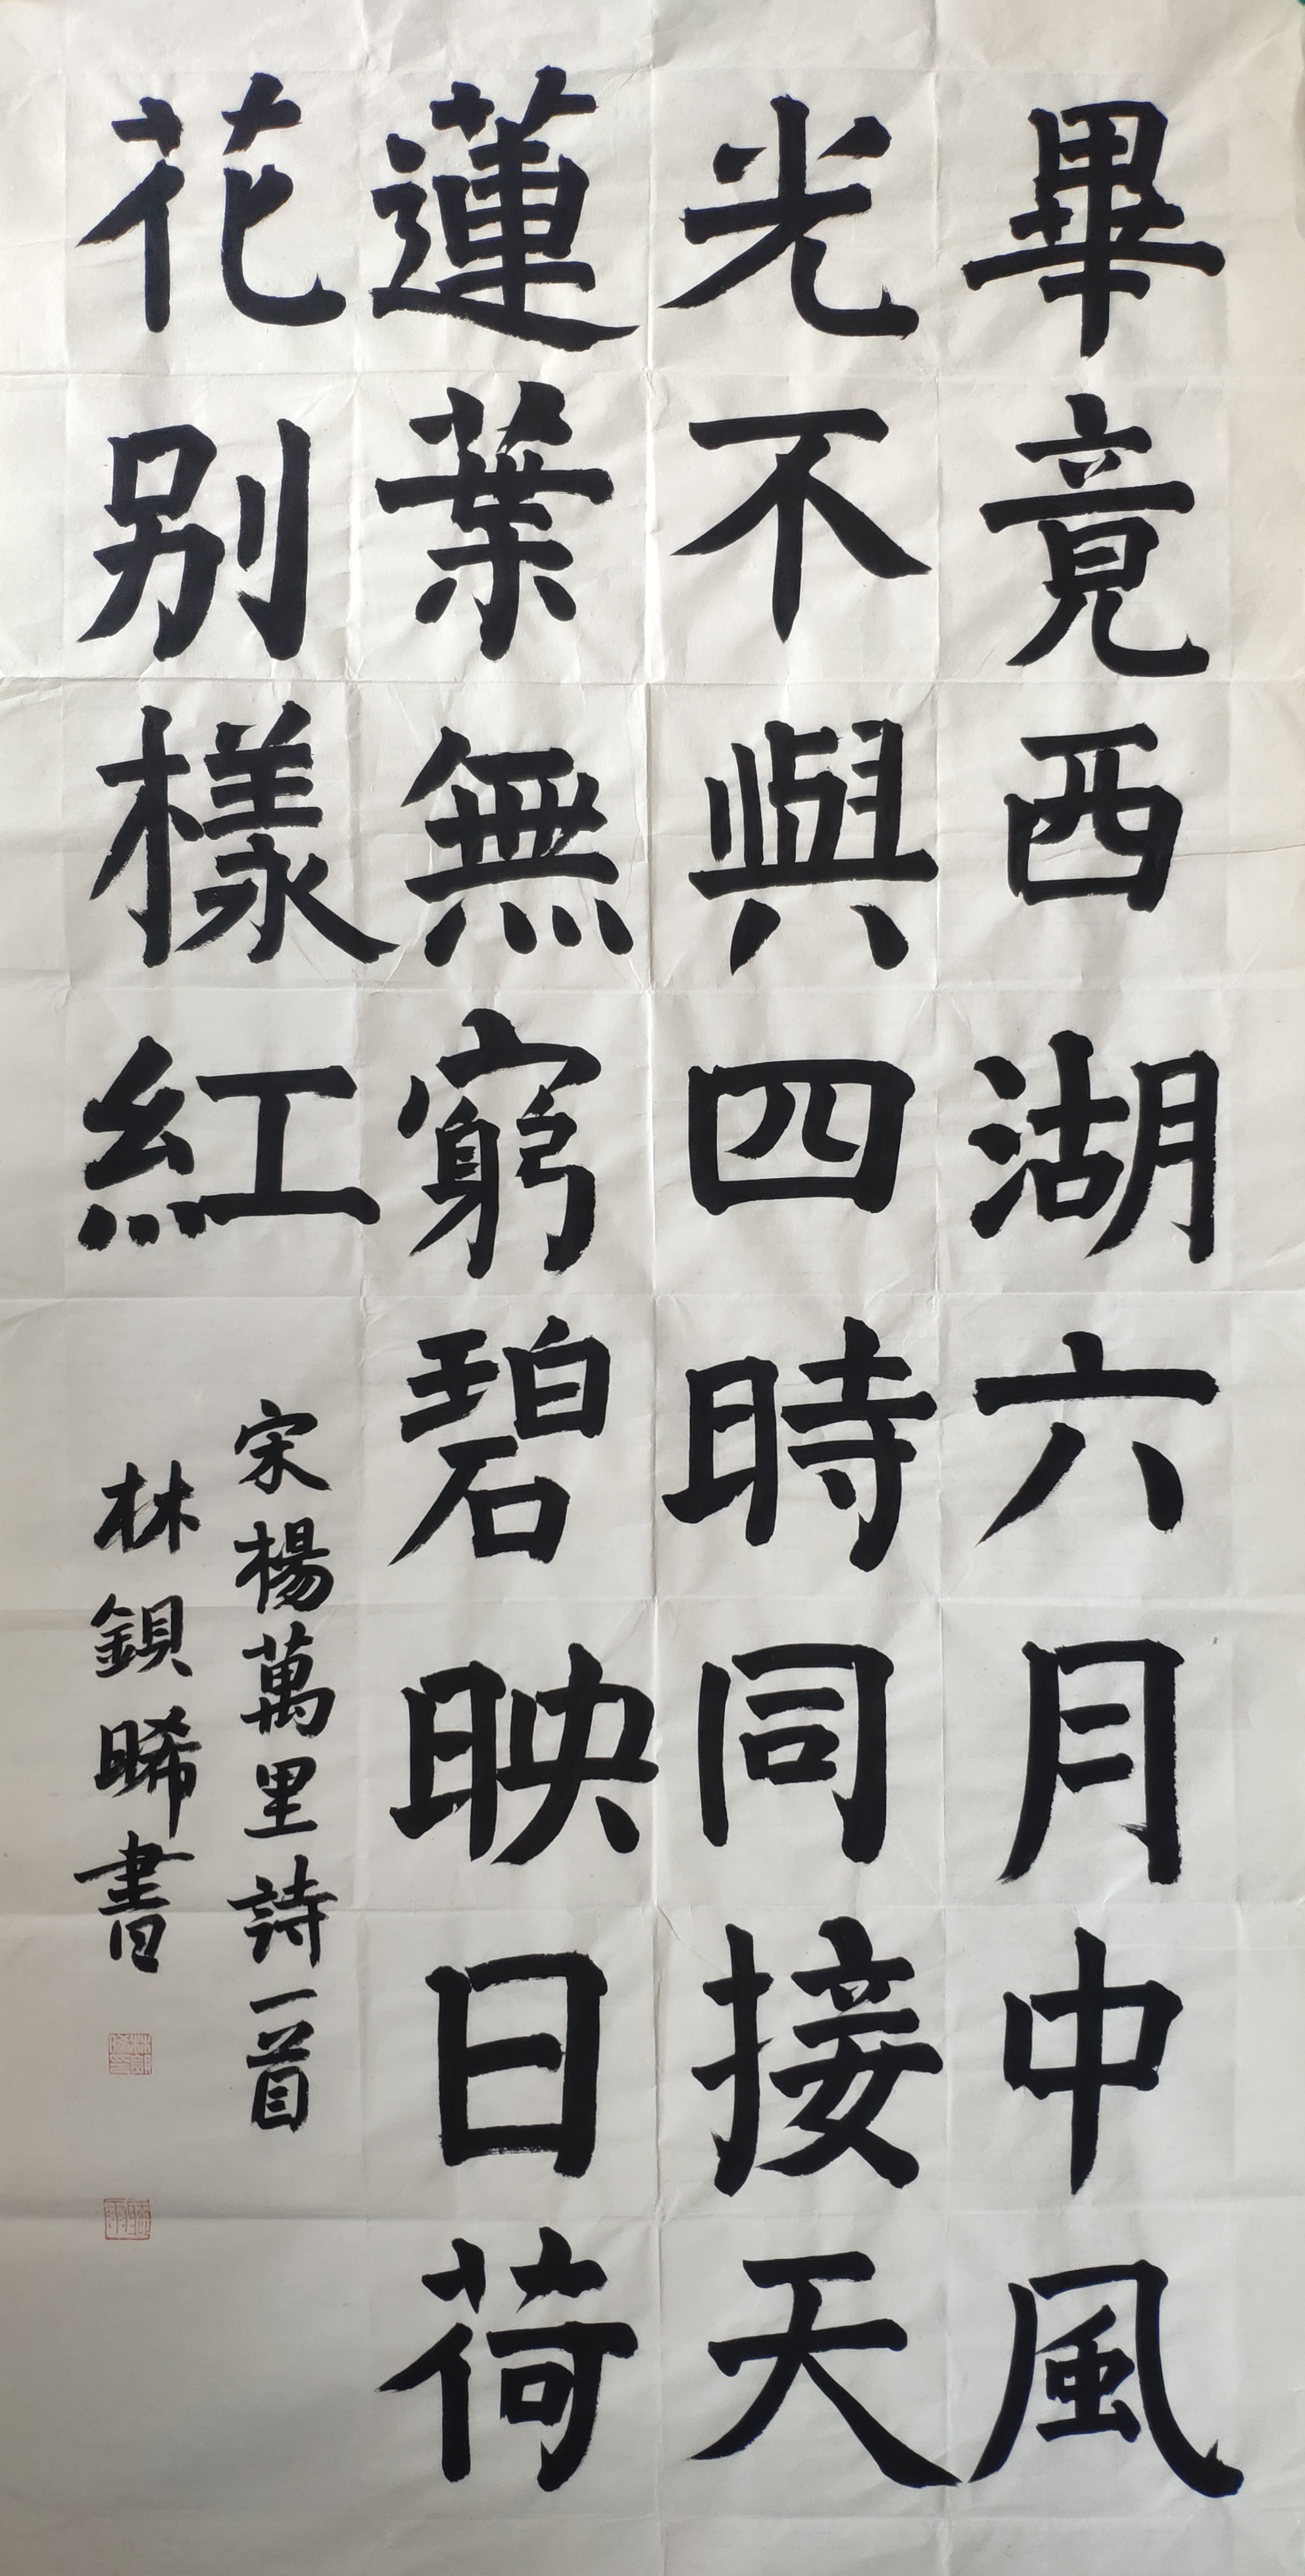 畢竟西湖六月中風
光不與四時同接天
蓮葉無窮碧映日荷
花别樣紅
宋楊萬里詩一首
林鋇晞書